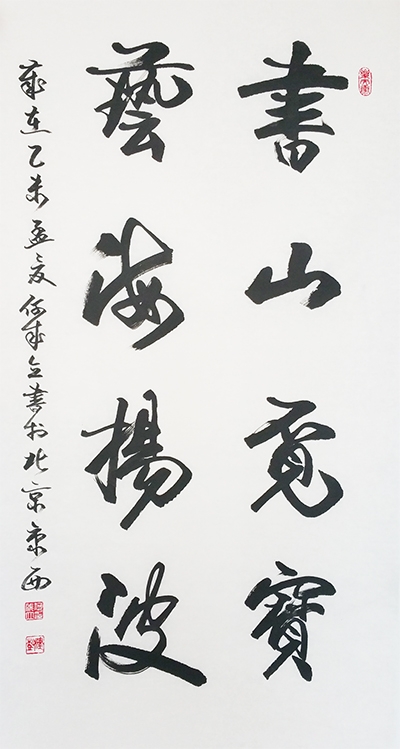 書山覓寶
藝海揚波
歲在乙未孟夏何成立書於北京京西